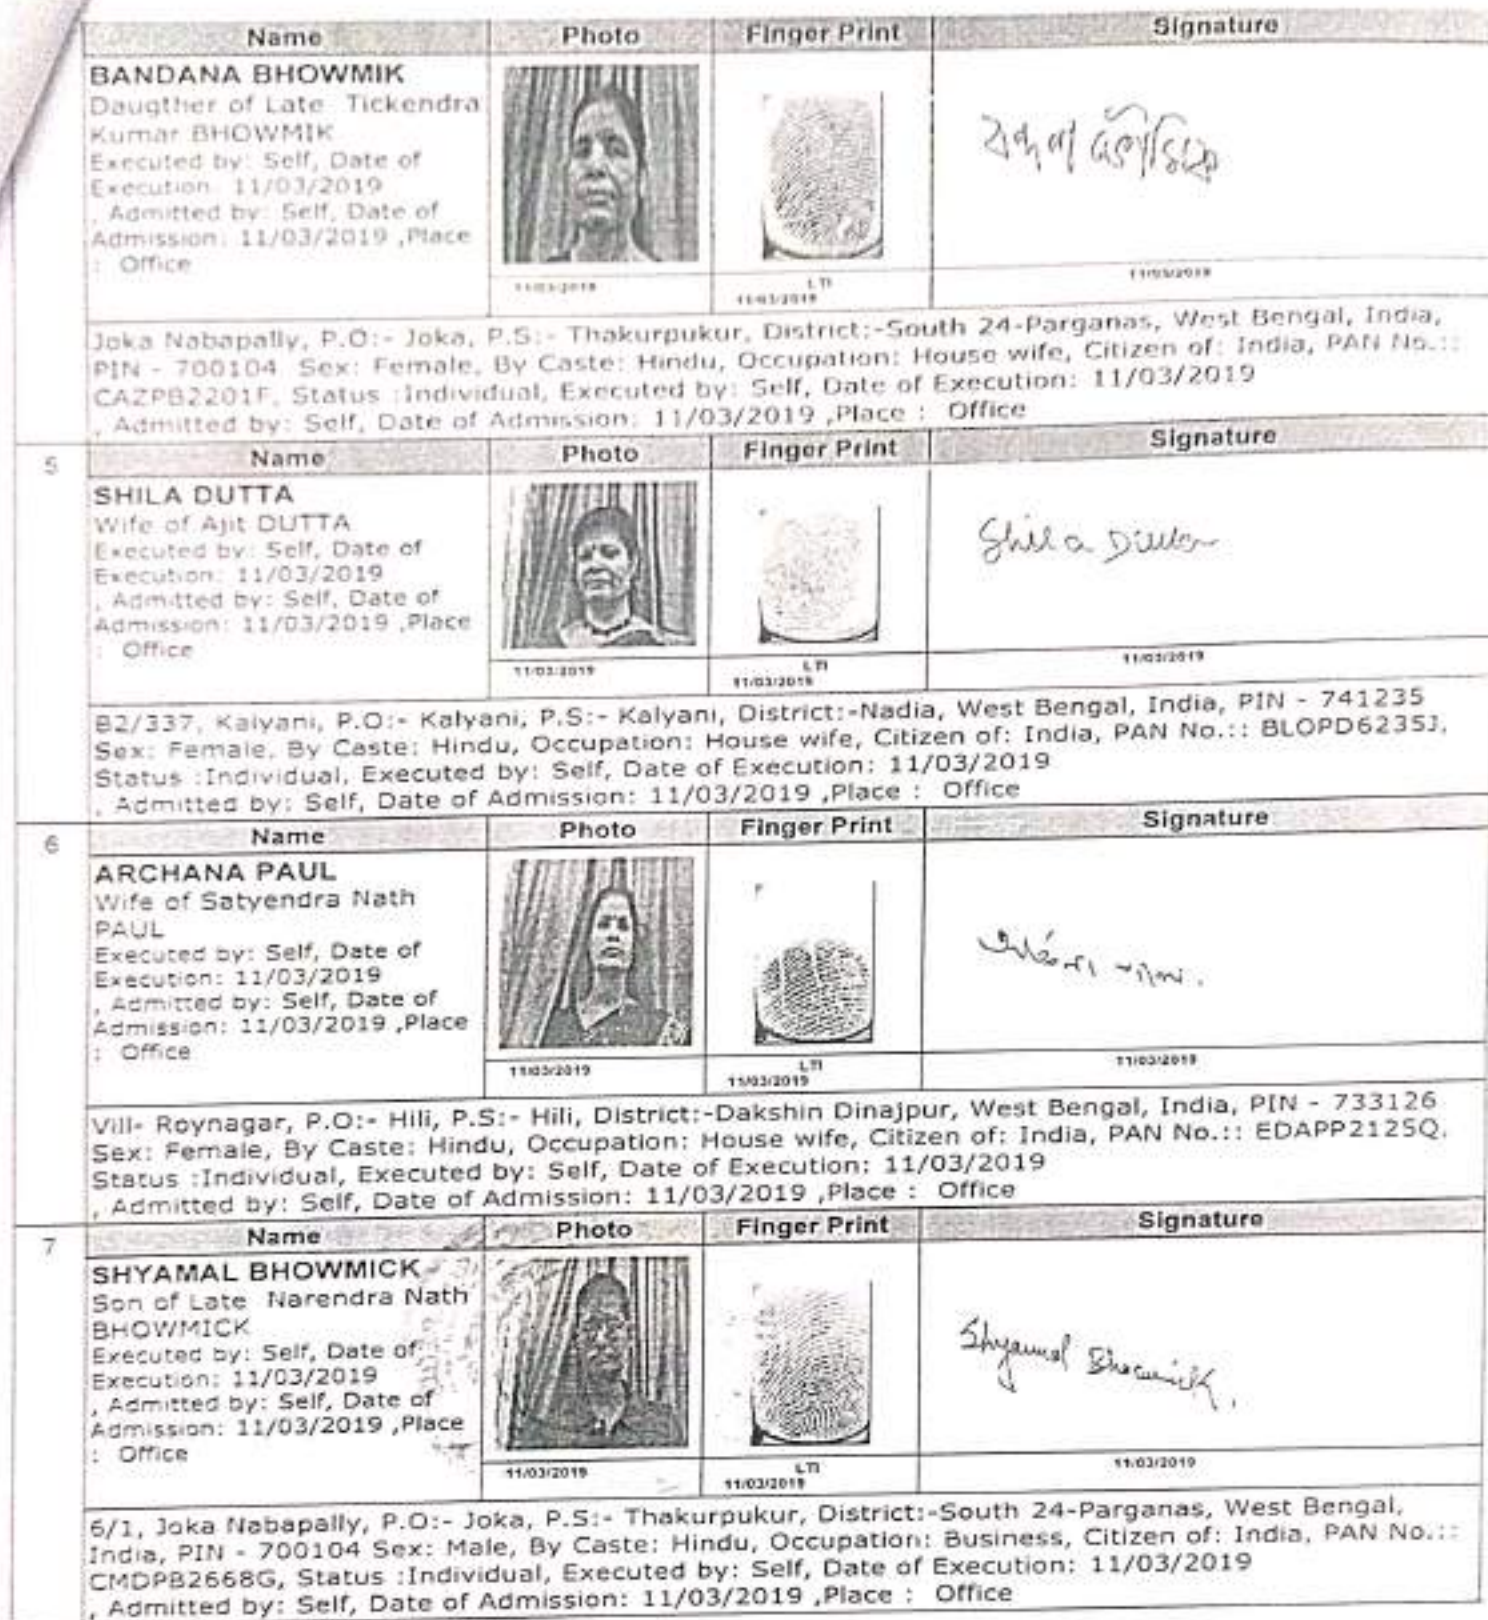 Name Photo Finger Print Signature
BANDANA BHOWMIK
Daugther of Late Tickendra
Kumar BHOWMIK
Executed by: Self, Date of
Execution: 11/03/2019
, Admitted by: Self, Date of
Admission: 11/03/2019 ,Place
: Office
11/03/2019 LTI 11/03/2019
11/03/2019
Joka Nabapally, P.O:- Joka, P.S:- Thakurpukur, District:-South 24-Parganas, West Bengal, India,
PIN - 700104 Sex: Female, By Caste: Hindu, Occupation: House wife, Citizen of: India, PAN No.::
CAZPB2201F, Status :Individual, Executed by: Self, Date of Execution: 11/03/2019
, Admitted by: Self, Date of Admission: 11/03/2019 ,Place : Office
5 Name Photo Finger Print Signature
SHILA DUTTA
Wife of Ajit DUTTA
Executed by: Self, Date of
Execution: 11/03/2019
, Admitted by: Self, Date of
Admission: 11/03/2019 ,Place
: Office
Shila Dutta
11/03/2019 LTI 11/03/2019
11/03/2019
B2/337, Kalyani, P.O:- Kalyani, P.S:- Kalyani, District:-Nadia, West Bengal, India, PIN - 741235
Sex: Female, By Caste: Hindu, Occupation: House wife, Citizen of: India, PAN No.:: BLOPD6235J,
Status :Individual, Executed by: Self, Date of Execution: 11/03/2019
, Admitted by: Self, Date of Admission: 11/03/2019 ,Place : Office
6 Name Photo Finger Print Signature
ARCHANA PAUL
Wife of Satyendra Nath
PAUL
Executed by: Self, Date of
Execution: 11/03/2019
, Admitted by: Self, Date of
Admission: 11/03/2019 ,Place
: Office
11/03/2019 LTI 11/03/2019
11/03/2019
Vill- Roynagar, P.O:- Hili, P.S:- Hili, District:-Dakshin Dinajpur, West Bengal, India, PIN - 733126
Sex: Female, By Caste: Hindu, Occupation: House wife, Citizen of: India, PAN No.:: EDAPP2125Q,
Status :Individual, Executed by: Self, Date of Execution: 11/03/2019
, Admitted by: Self, Date of Admission: 11/03/2019 ,Place : Office
7 Name Photo Finger Print Signature
SHYAMAL BHOWMICK
Son of Late Narendra Nath
BHOWMICK
Executed by: Self, Date of
Execution: 11/03/2019
, Admitted by: Self, Date of
Admission: 11/03/2019 ,Place
: Office
Shyamal Bhowmick.
11/03/2019 LTI 11/03/2019
11/03/2019
6/1, Joka Nabapally, P.O:- Joka, P.S:- Thakurpukur, District:-South 24-Parganas, West Bengal,
India, PIN - 700104 Sex: Male, By Caste: Hindu, Occupation: Business, Citizen of: India, PAN No.::
CMDPB2668G, Status :Individual, Executed by: Self, Date of Execution: 11/03/2019
, Admitted by: Self, Date of Admission: 11/03/2019 ,Place : Office